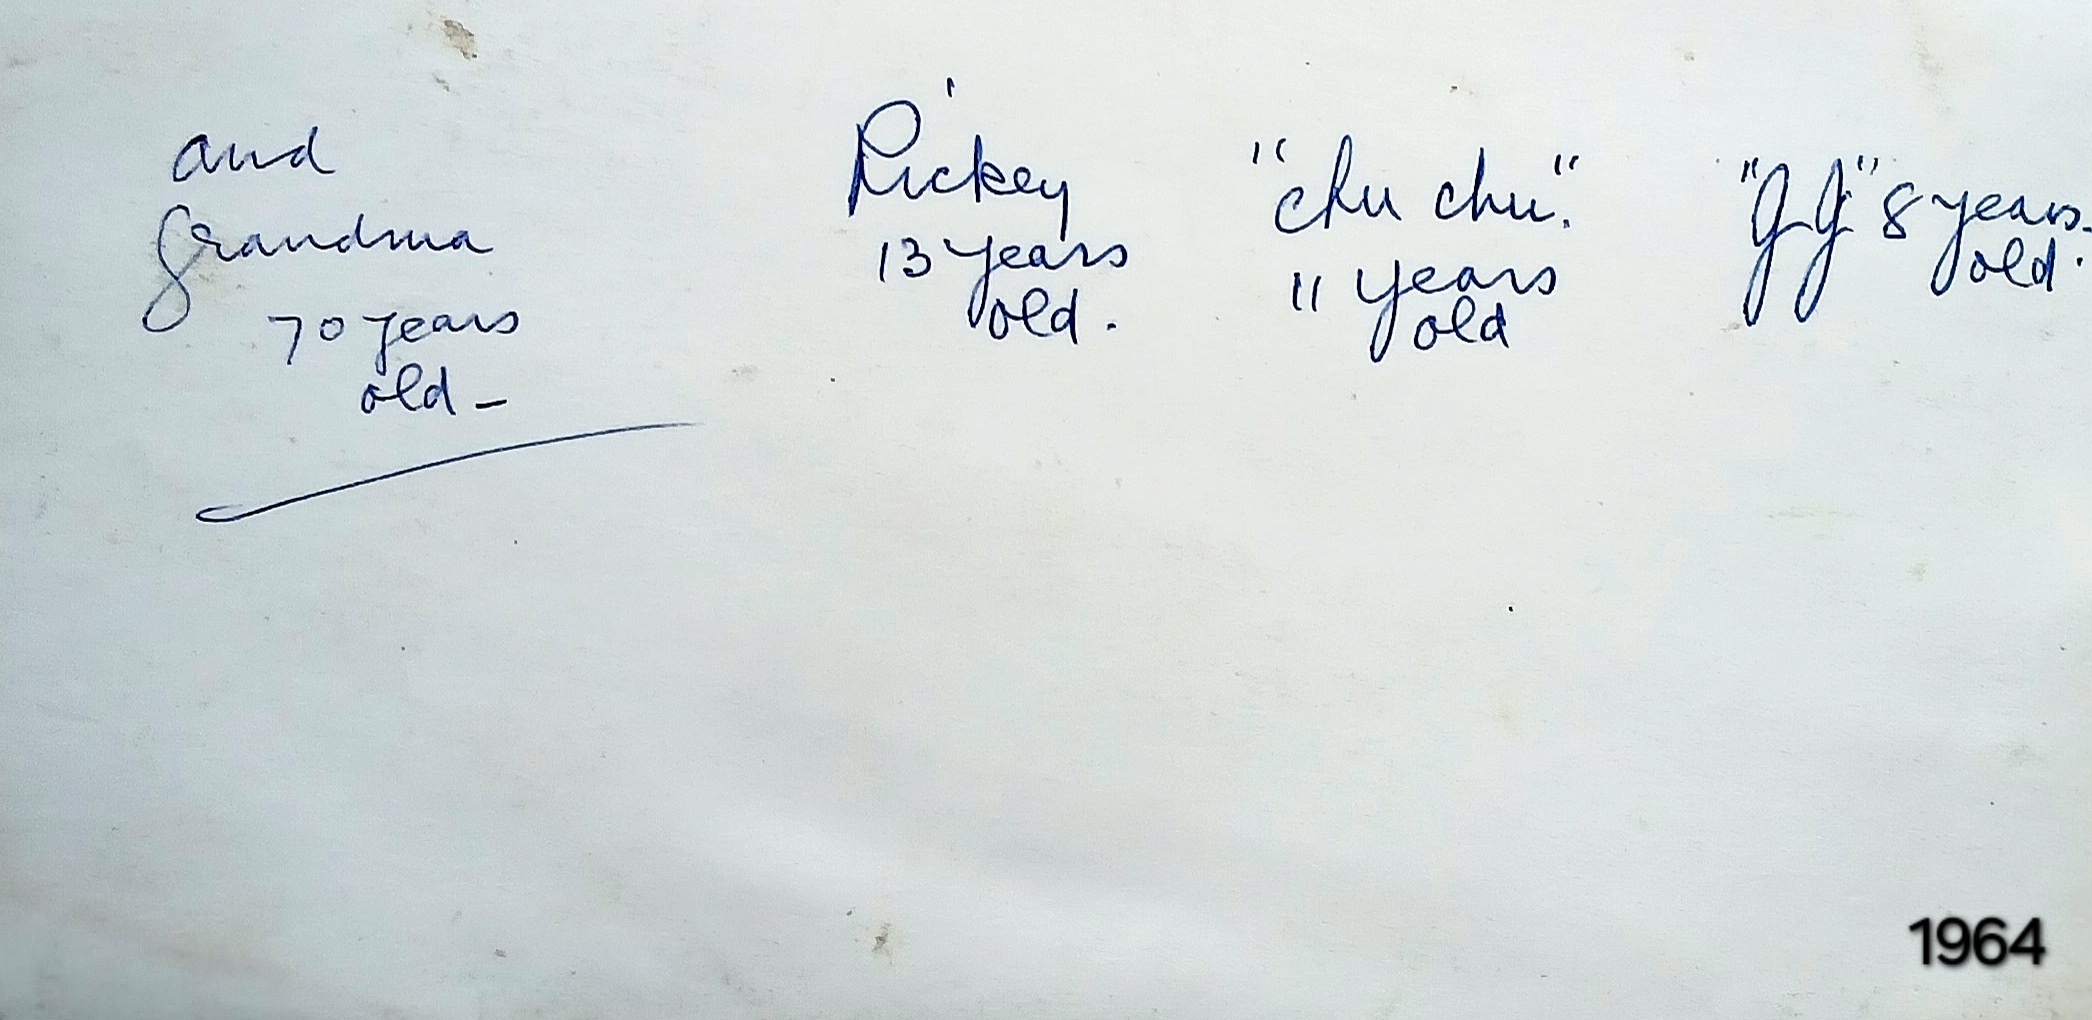 and
Grandma
70 years
old -
Rickey
13 years
old.
"chu chu".
11 years
old
"JJ" 8 years
old.
1964